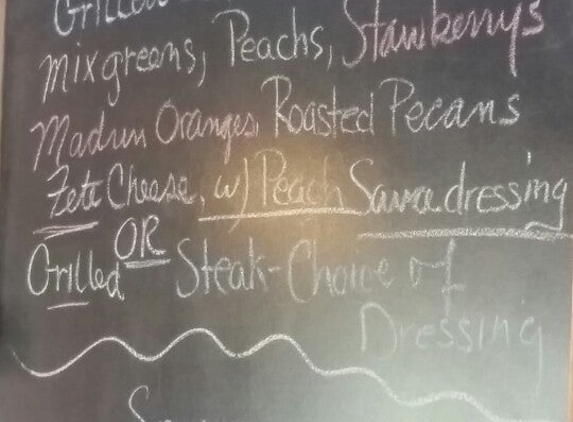 Grilled
Mixgreens, Peachs, Stawberrys
Madrun Oranges, Roasted Pecans
Fete Cheese, w/ Peach Sauce dressing
OR
Grilled Steak-Choice of
Dressing